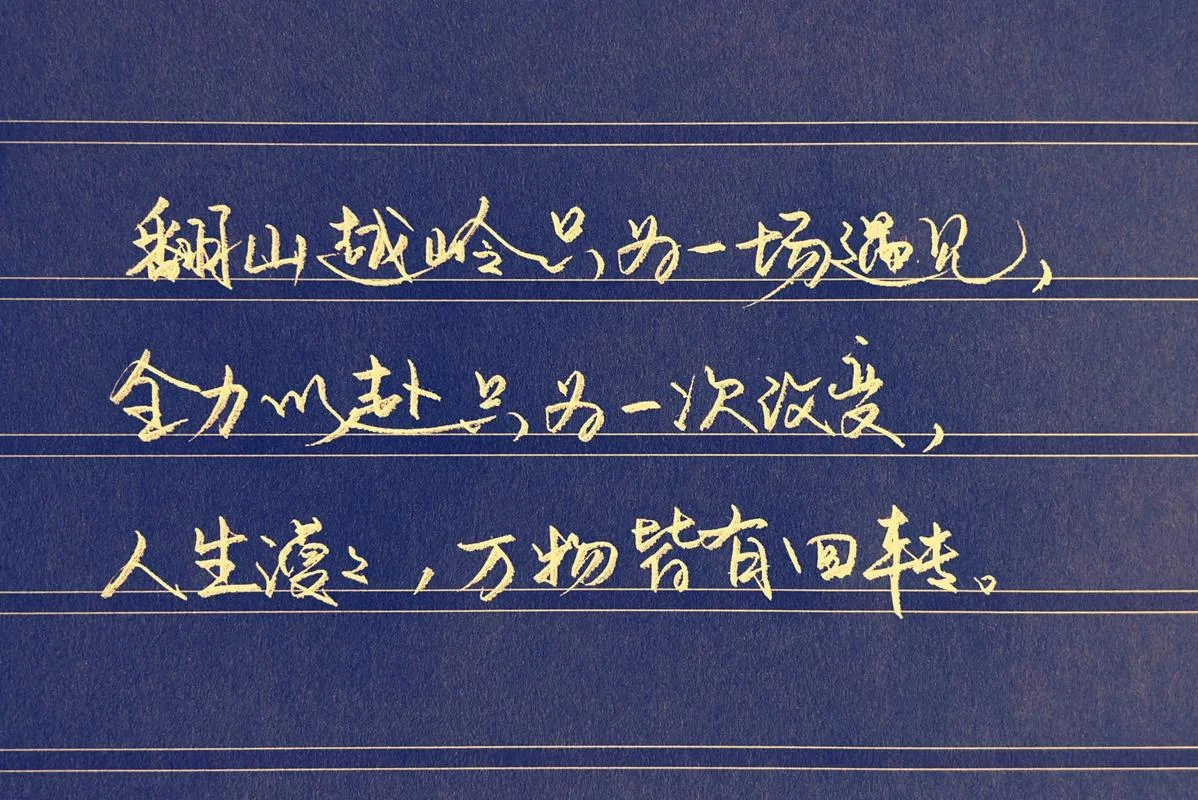 翻山越岭只为一场遇见，
全力以赴只为一次改变，
人生漫漫，万物皆有回转。